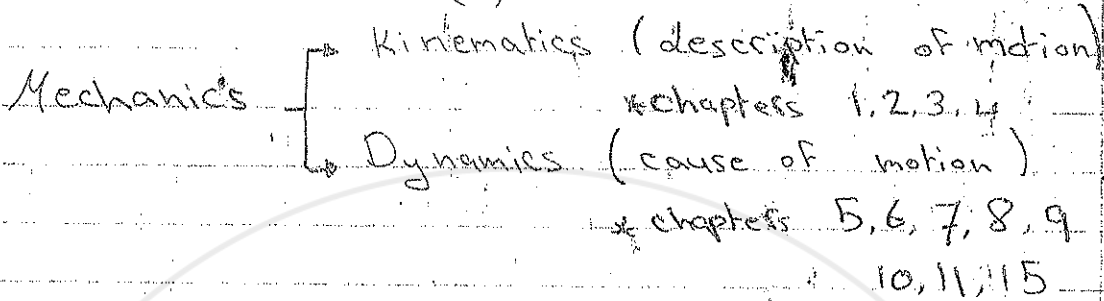 Kinematics (description of motion)
Mechanics
*chapters 1,2,3,4
Dynamics (cause of motion)
* chapters 5,6,7,8,9
10,11,15